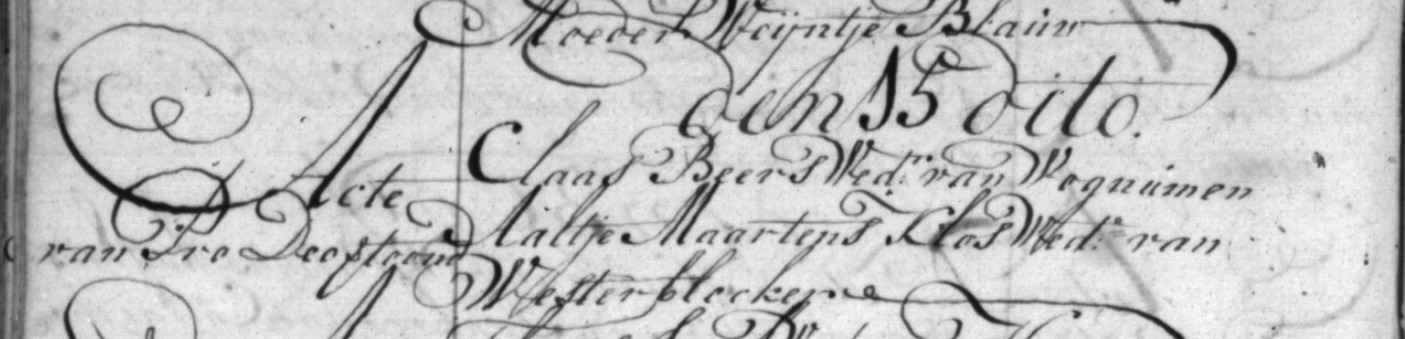 Moeder Weijntje Blauw
den 15 dito.
Acte
van Pro Deo
Claas Beers Wedr. van Wognumen
Aaltje Maartens Klos Wede. van
Westerblocker